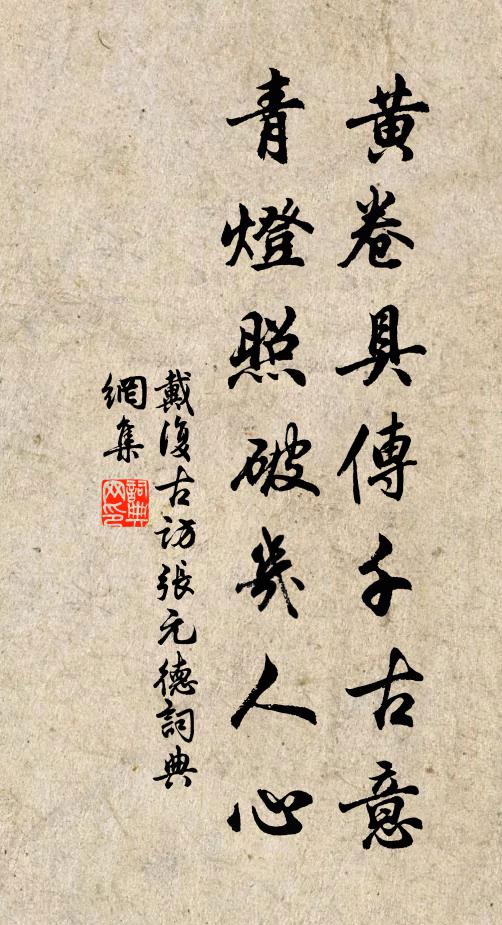 黃卷具傳千古意
青燈照破幾人心
戴復古訪張元德詞典
網集
詞典網印